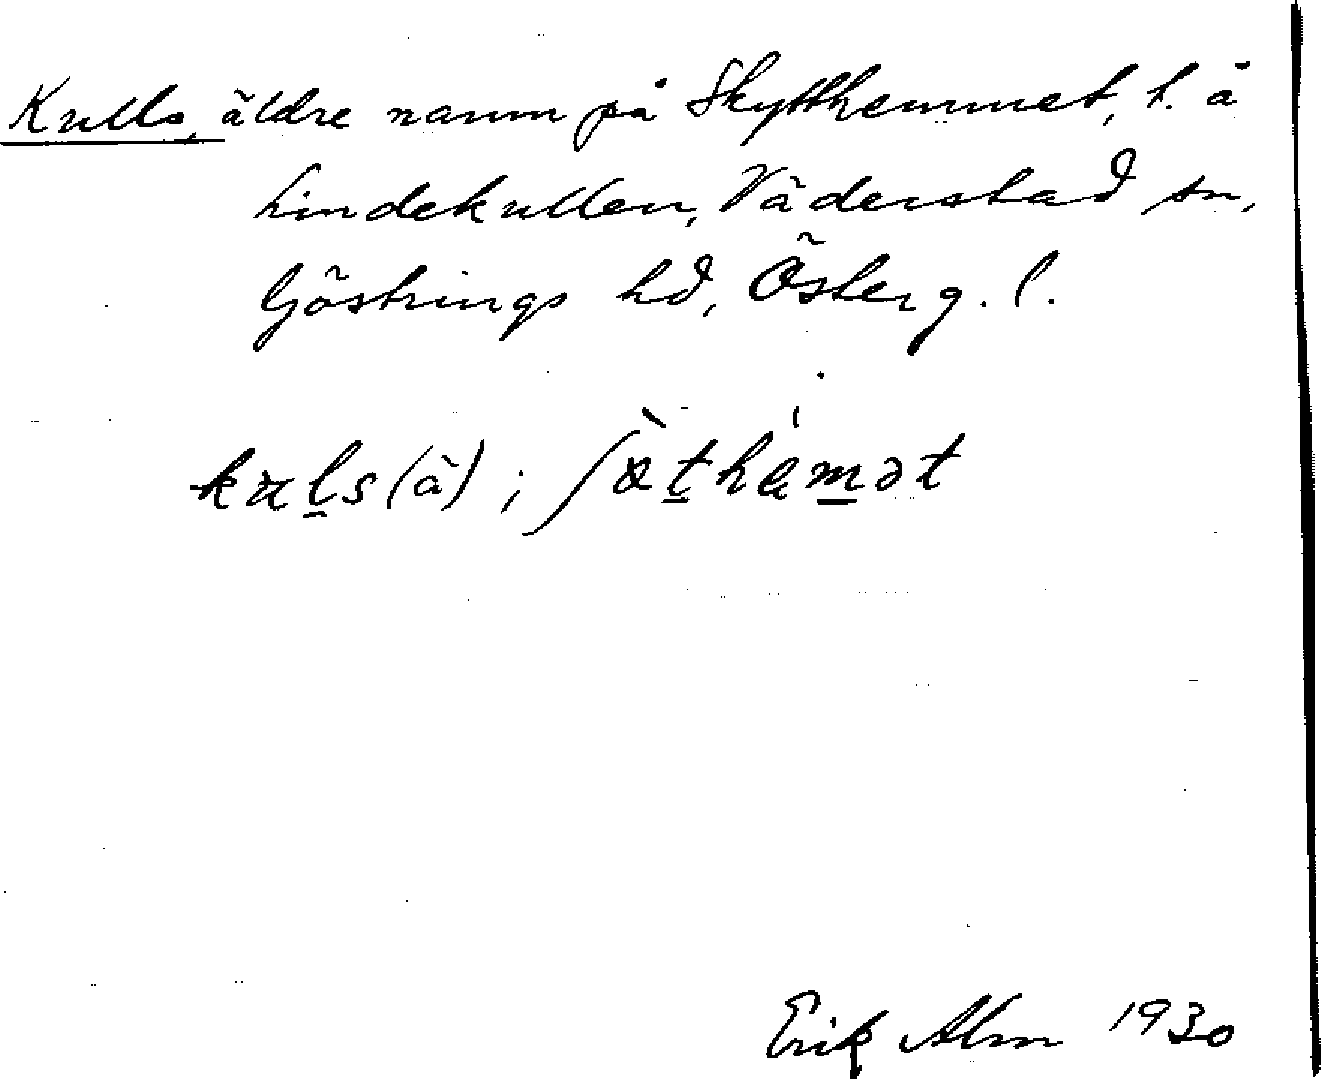 Kulls, äldre namn på Skytthemmet, t. å
Lindekullen, Väderstad sn,
Göstrings hd, Österg. l.
kuls(ä); ʃøthemət
Erik Alm 1930